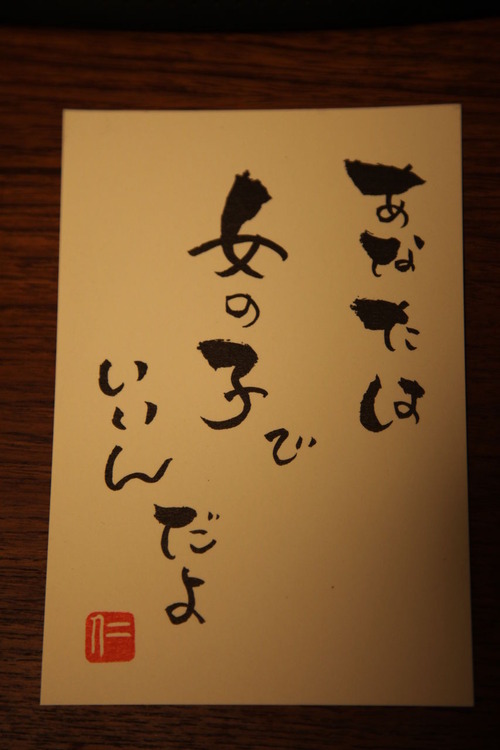 あなたは
女の子で
いいんだよ
仁